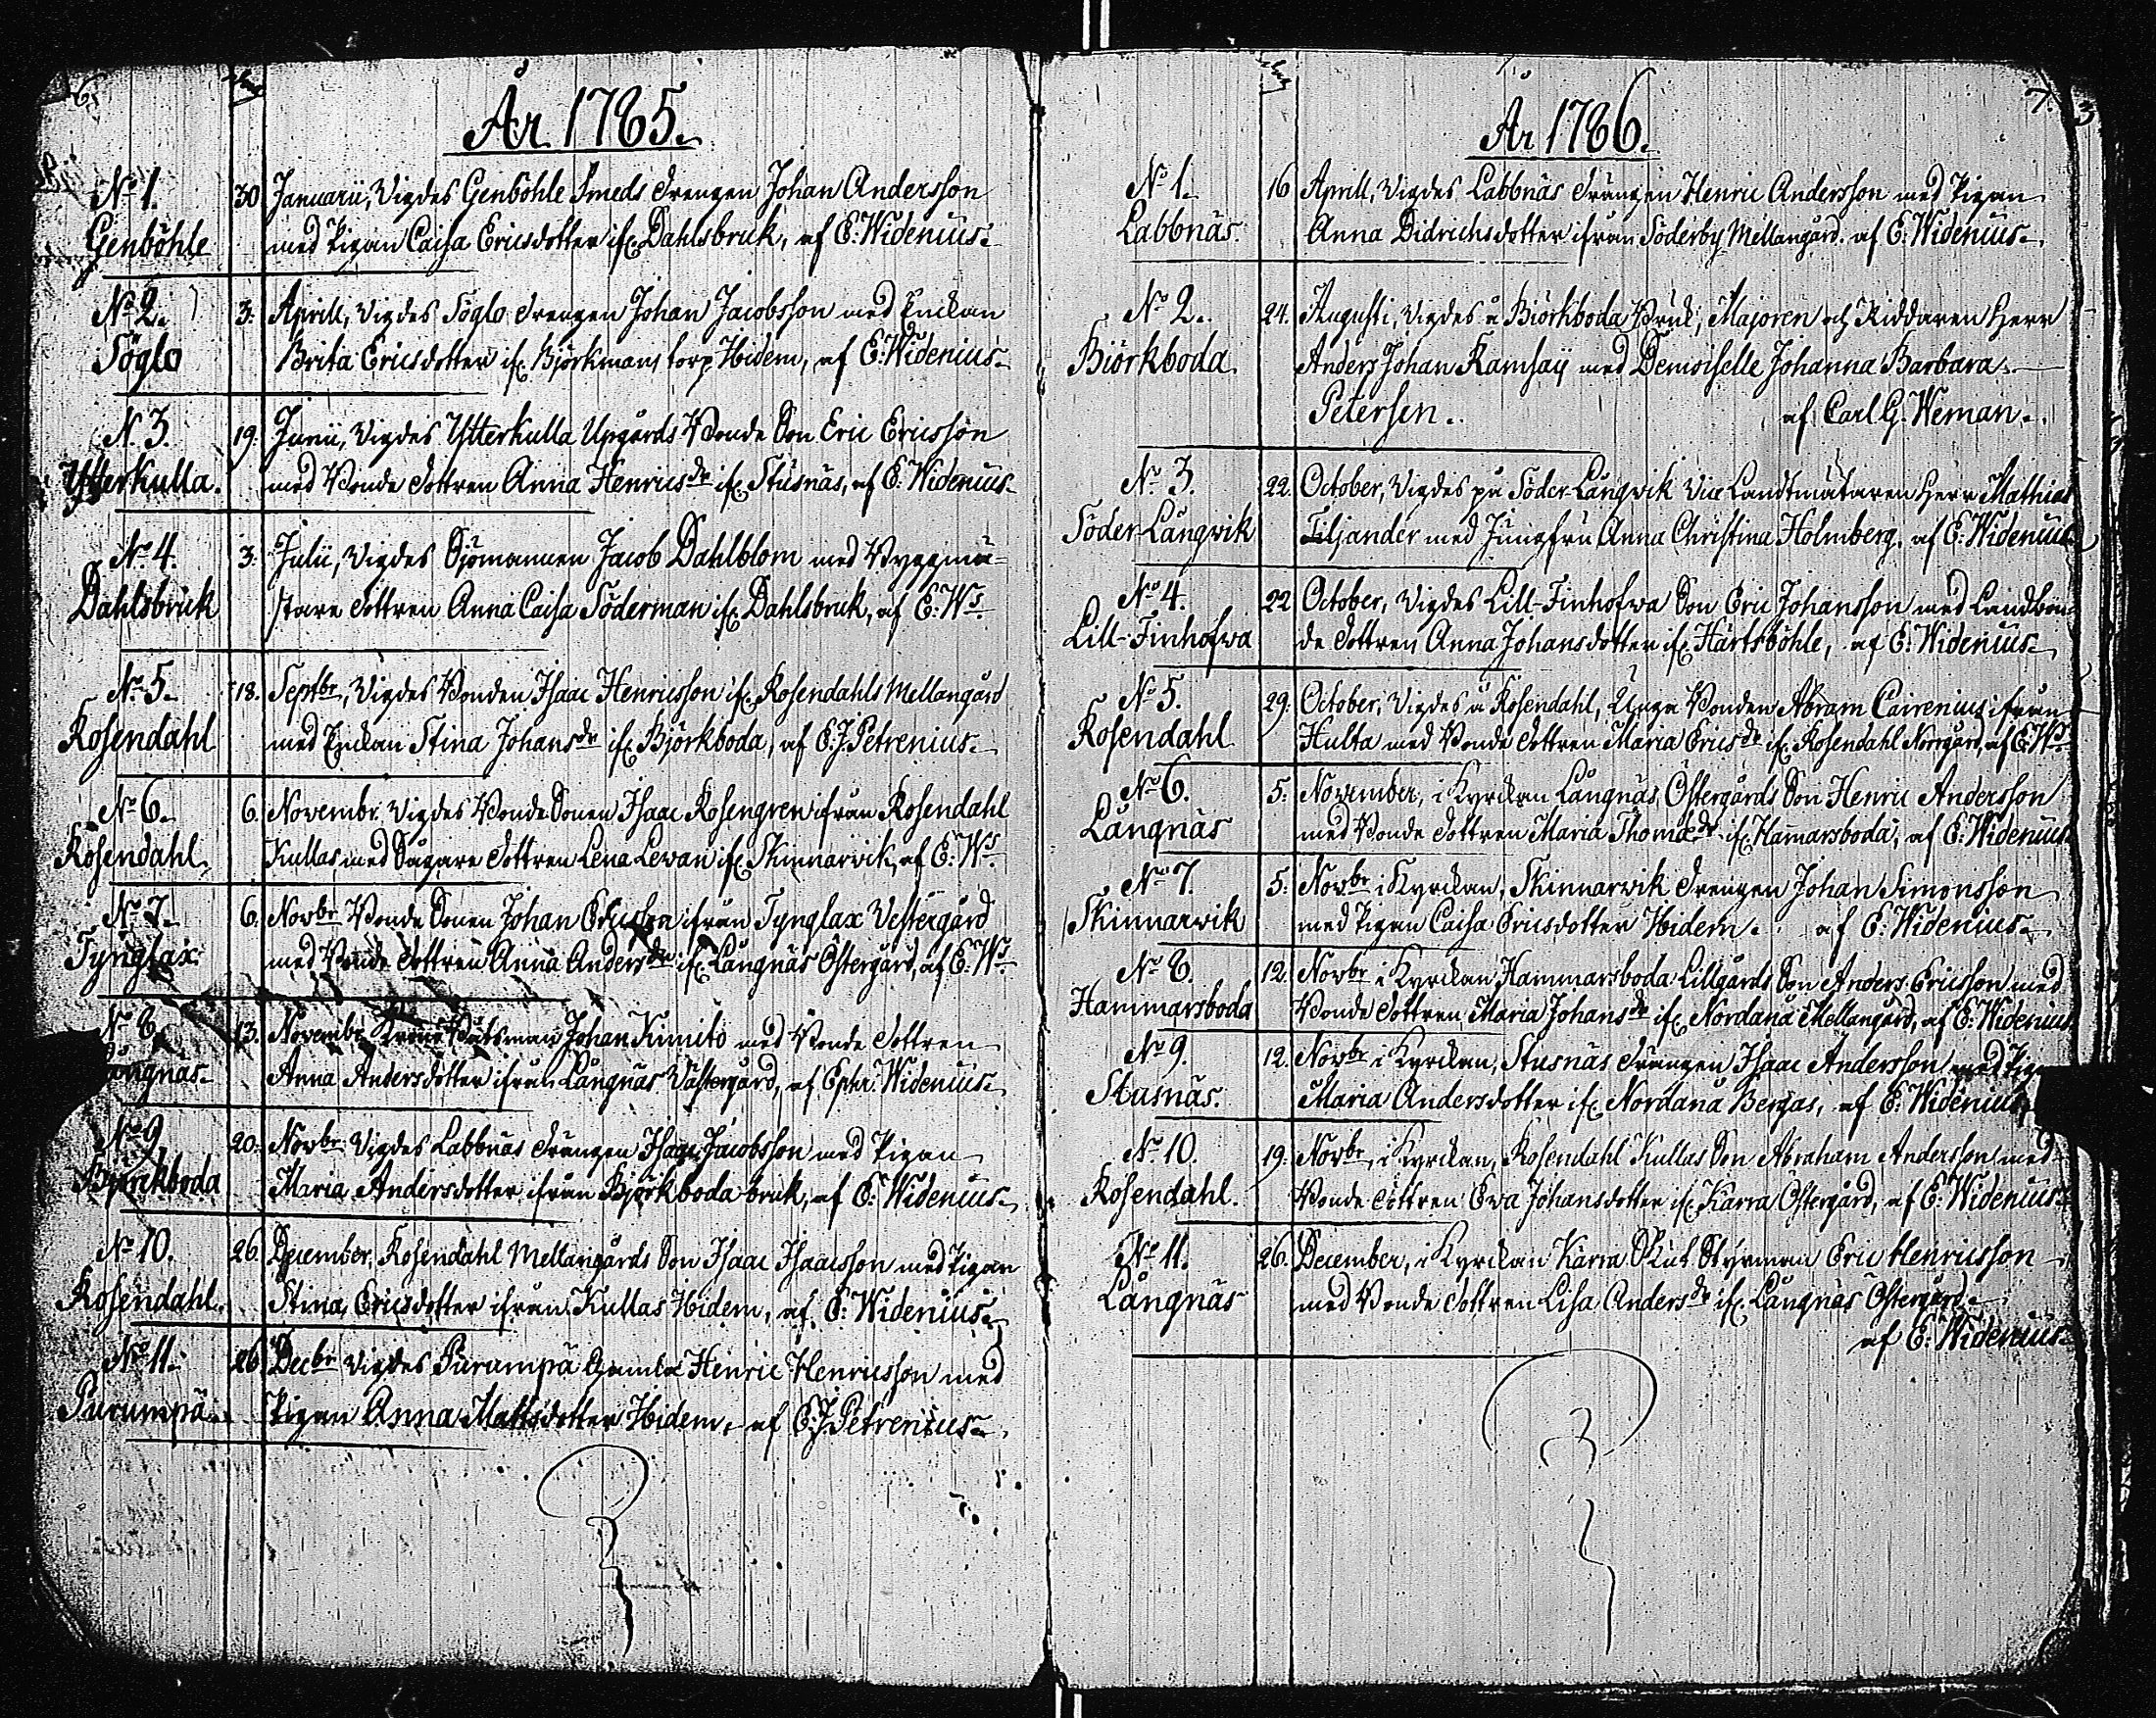 6.
År 1785.
No 1. 30 Januarii, Vigdes Genböhle Smeds Drengen Johan Andersson
Genböhle med Pigan Caisa Ericsdotter if. Dahlsbruk, af E: Widenius.
No 2. 3: Aprill, Vigdes Söglo Drengen Johan Jacobsson med Enckan
Söglo Brita Ericsdotter if. Björkmans torp Ibidem, af E: Widenius.
N. 3. 19: Junii, Vigdes Ytterkulla Upgårds Bonde Son Eric Ericsson
Ytterkulla. med Bonde Dottren Anna Henricsdr if. Stusnäs, af E: Widenius.
No 4. 3: Julii, Vigdes Sjömannen Jacob Dahlblom med Byggmä-
Dahlsbruk stare Dottren Anna Caisa Söderman if. Dahlsbruk, af E: Ws.
No 5. 18. Septbr, Vigdes Bonden Isaac Henricsson if. Rosendahls Mellangård
Rosendahl med Enckan Stina Johansdr if. Björkboda, af E. J. Petrenius.
No 6. 6. Novembr. Vigdes Bonde Sonen Isaac Rosengren ifrån Rosendahl
Rosendahl. Kullas, med Sågare Dottren Lena Lewan if. Skinnarvik, af E: Ws.
No 7. 6. Novbr. Bonde Sonen Johan Ericsson ifrån Tynglax Vestergård
Tynglax. med Bonde Dottren Anna Andersdr if. Långnäs Östergård, af E: Ws.
No 8 13. Novembr. Båtsman Johan Kimito med Bonde Dottren
Långnäs. Anna Andersdotter ifrån Långnäs Västergård, af Ephr. Widenius.
No 9 20: Novbr. Vigdes Labbnäs Drängen Isaac Jacobsson med Pigan
Björckboda Maria Andersdotter ifrån Björkboda bruk, af E: Widenius.
No 10. 26 December, Rosendahl Mellangårds Son Isaac Isaacsson med Pigan
Rosendahl. Stina Ericsdotter ifrån Kullas Ibidem, af E: Widenius.
No 11. 26 Decbr Vigdes Purumpä Gamla Henric Henricsson med
Purumpä. Pigan Anna Mattsdotter Ibidem, af E. J. Petrenius.
7. 3
År 1786.
No 1. 16 Aprill, Vigdes Labbnäs Drängen Henric Andersson med Pigan
Labbnäs. Anna Didrichsdotter ifrån Söderby Mellangård. af E: Widenius.
No 2. 24. Augusti, Vigdes å Biörkboda Bruk, Majoren och Riddaren Herr
Biörkboda. Anders Johan Ramsaÿ med Demoiselle Johanna Barbara
Petersen. af Carl G. Weman.
No 3. 22. October, Vigdes på Söder-Långvik Vice Landtmätaren Herr Mathias
Söder-Långvik Tiljander med Jungfru Anna Christina Holmberg. af E: Widenius
No 4. 22 October, Vigdes Lill-Finhofwa Son Eric Johansson med Landbon-
Lill-Finhofwa de Dottren Anna Johansdotter if. Hartsböhle, af E: Widenius.
No 5. 29. October, Vigdes å Rosendahl, Unga Bonden Abram Cairenius ifrån
Rosendahl Hulta med Bonde Dottren Maria Ericsdr if. Rosendahl Norrgård, af E: Ws.
No 6. 5: November, i Kyrckan Långnäs Östergårds Son Henric Andersson
Långnäs med Bonde Dottren Maria Thomædr if. Hamarsboda, af E: Widenius
No 7. 5: Novbr i Kyrckan, Skinnarwik Drengen Johan Simonsson
Skinnarwik med Pigan Caisa Ericsdotter Ibidem. af E: Widenius.
No 8. 12. Novbr i Kyrckan, Hammarsboda Lillgårds Son Anders Ericsson med
Hammarsboda Bonde Dottren Maria Johansdr if. Nordanå Mellangård, af E: Widenius
No 9. 12. Novbr i Kyrckan, Stusnäs Drängen Isaac Andersson med
Stusnäs. Maria Andersdotter if. Nordanå Bergas, af E: Widenius
No 10. 19. Novbr, i Kyrckan, Rosendahl Kullas Son Abraham Andersson med
Rosendahl. Bonde Dottren Ewa Johansdotter if. Karra Östergård, af E: Widenius.
No 11. 26. December, i Kyrckan Kärra Skut Styrman Eric Henricsson
Långnäs med Bonde Dottren Lisa Andersdr if. Långnäs Östergård.
af E: Widenius.